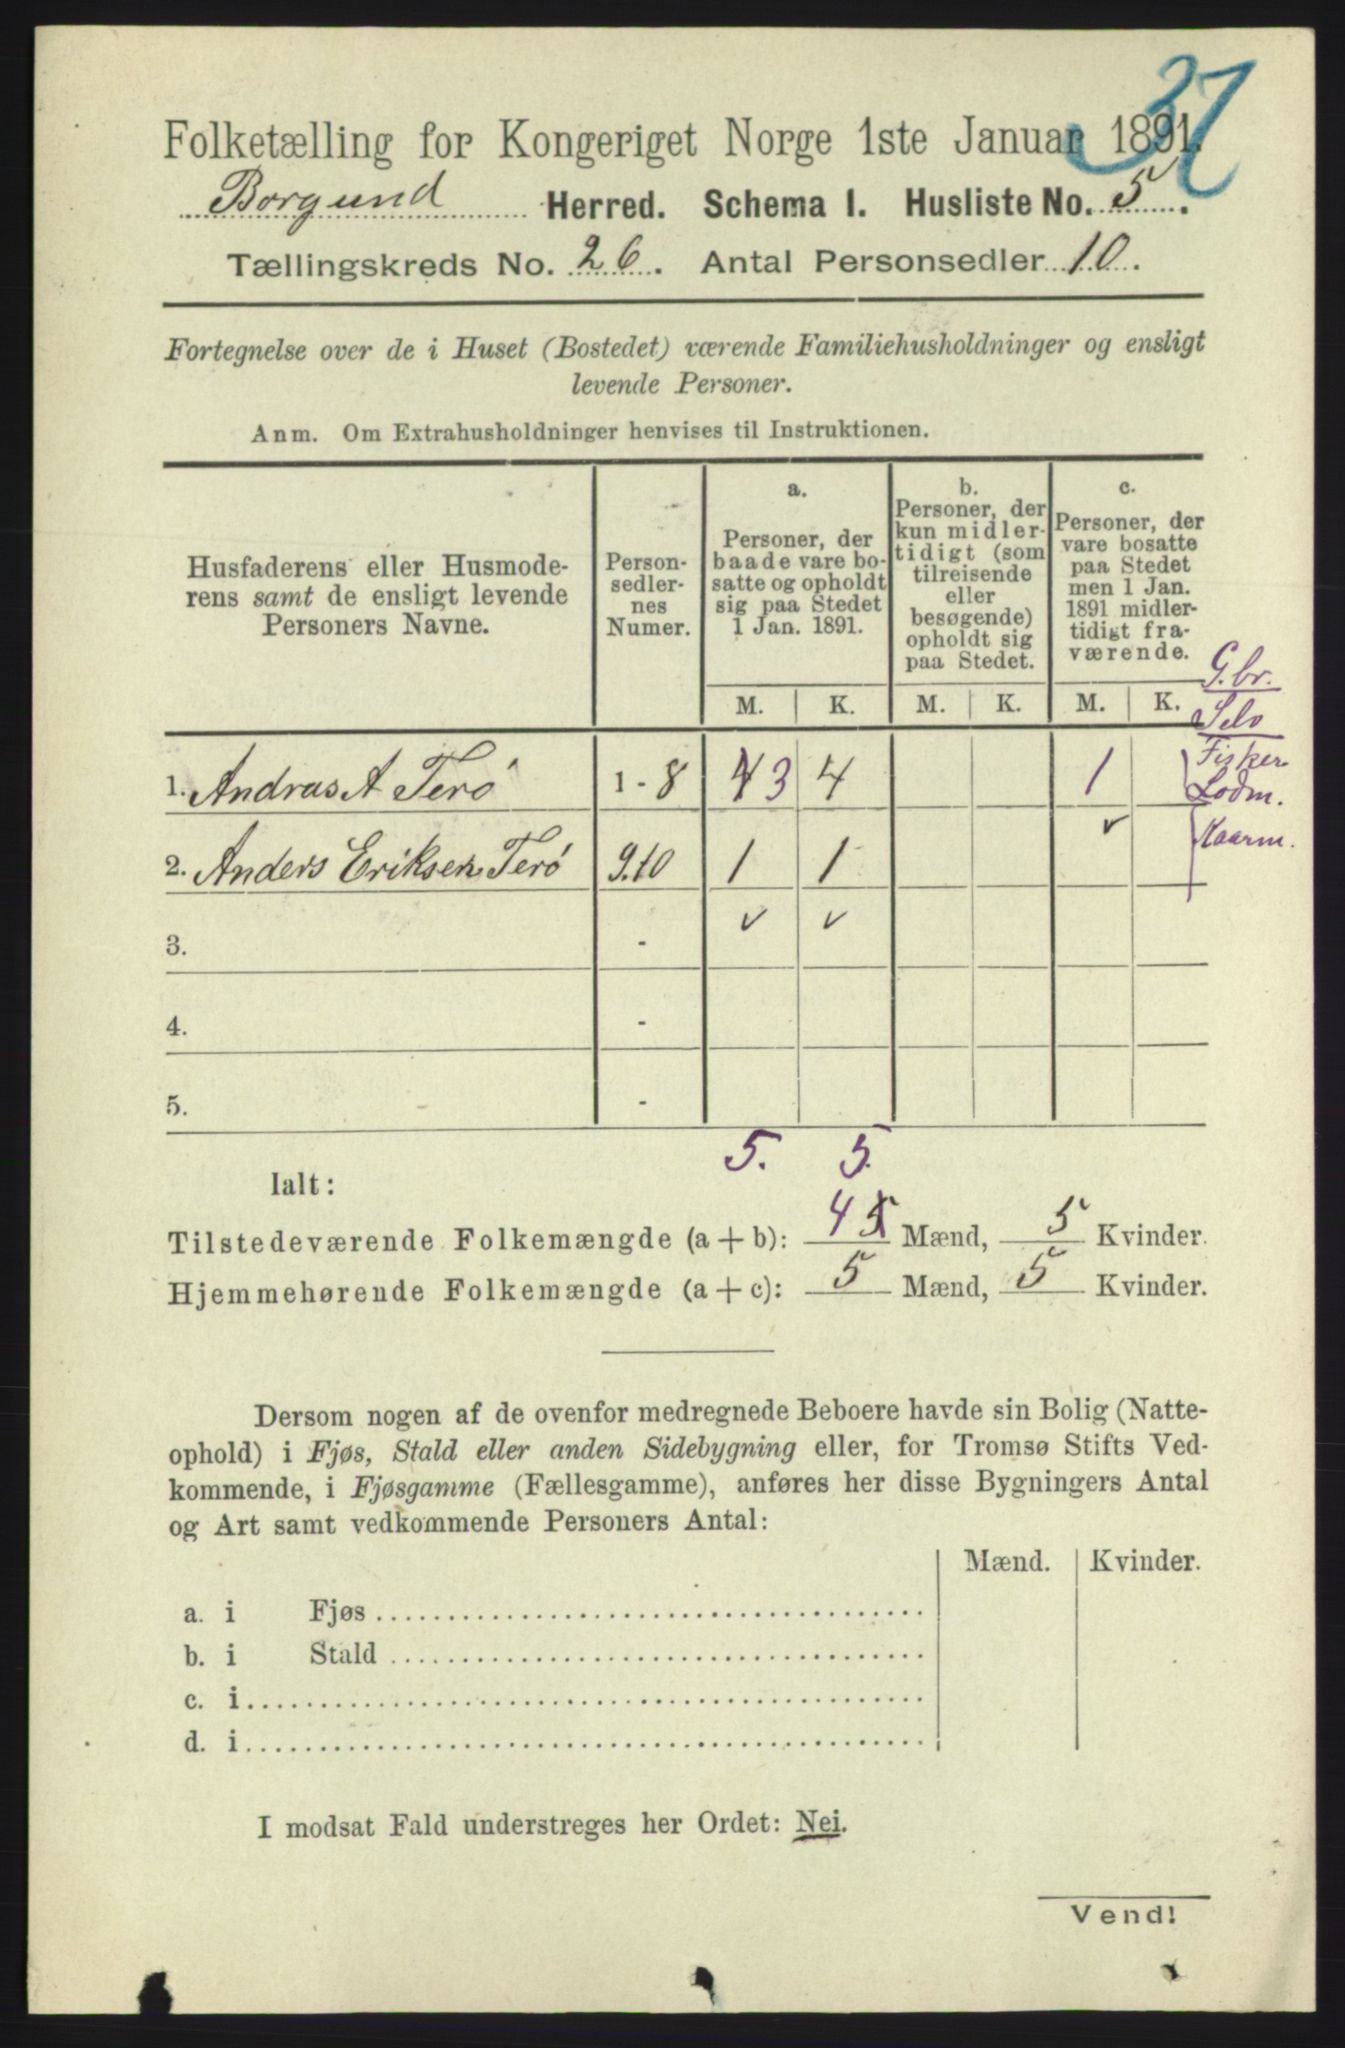 37
Folketælling for Kongeriget Norge 1ste Januar 1891.
Borgund Herred. Schema 1. Husliste No. 5.
Tællingskreds No. 26. Antal Personsedler 10.
Fortegnelse over de i Huset (Bostedet) værende Familiehusholdninger og ensligt
levende Personer.
Anm. Om Extrahusholdninger henvises til Instruktionen.
Husfaderens eller Husmode-
rens samt de ensligt levende
Personers Navne.
Person-
sedler-
nes
Numer.
a.
Personer, der
baade vare bo-
satte og opholdt
sig paa Stedet
1 Jan. 1891.
b.
Personer, der
kun midler-
tidigt (som
tilreisende
eller
besøgende)
opholdt sig
paa Stedet.
c.
Personer, der
vare bosatte
paa Stedet
men 1 Jan.
1891 midler-
tidigt fra-
værende.
M. K. M. K. M. K.
G.br.
Selv
Fisker
Lodm.
1. Andras A Terö 1 - 8 4 3 4 1
Kaarm.
2. Anders Eriksen Terö 9.10 1 1 ✓
3. - ✓ ✓
4. -
5. -
5. 5.
Ialt:
Tilstedeværende Folkemængde (a + b): 4 5 Mænd, 5 Kvinder.
Hjemmehørende Folkemængde (a + c): 5 Mænd, 5 Kvinder.
Dersom nogen af de ovenfor medregnede Beboere havde sin Bolig (Natte-
ophold) i Fjøs, Stald eller anden Sidebygning eller, for Tromsø Stifts Ved-
kommende, i Fjøsgamme (Fællesgamme), anføres her disse Bygningers Antal
og Art samt vedkommende Personers Antal:
Mænd. Kvinder.
a. i Fjøs
b. i Stald
c. i
d. i
I modsat Fald understreges her Ordet: Nei.
Vend!